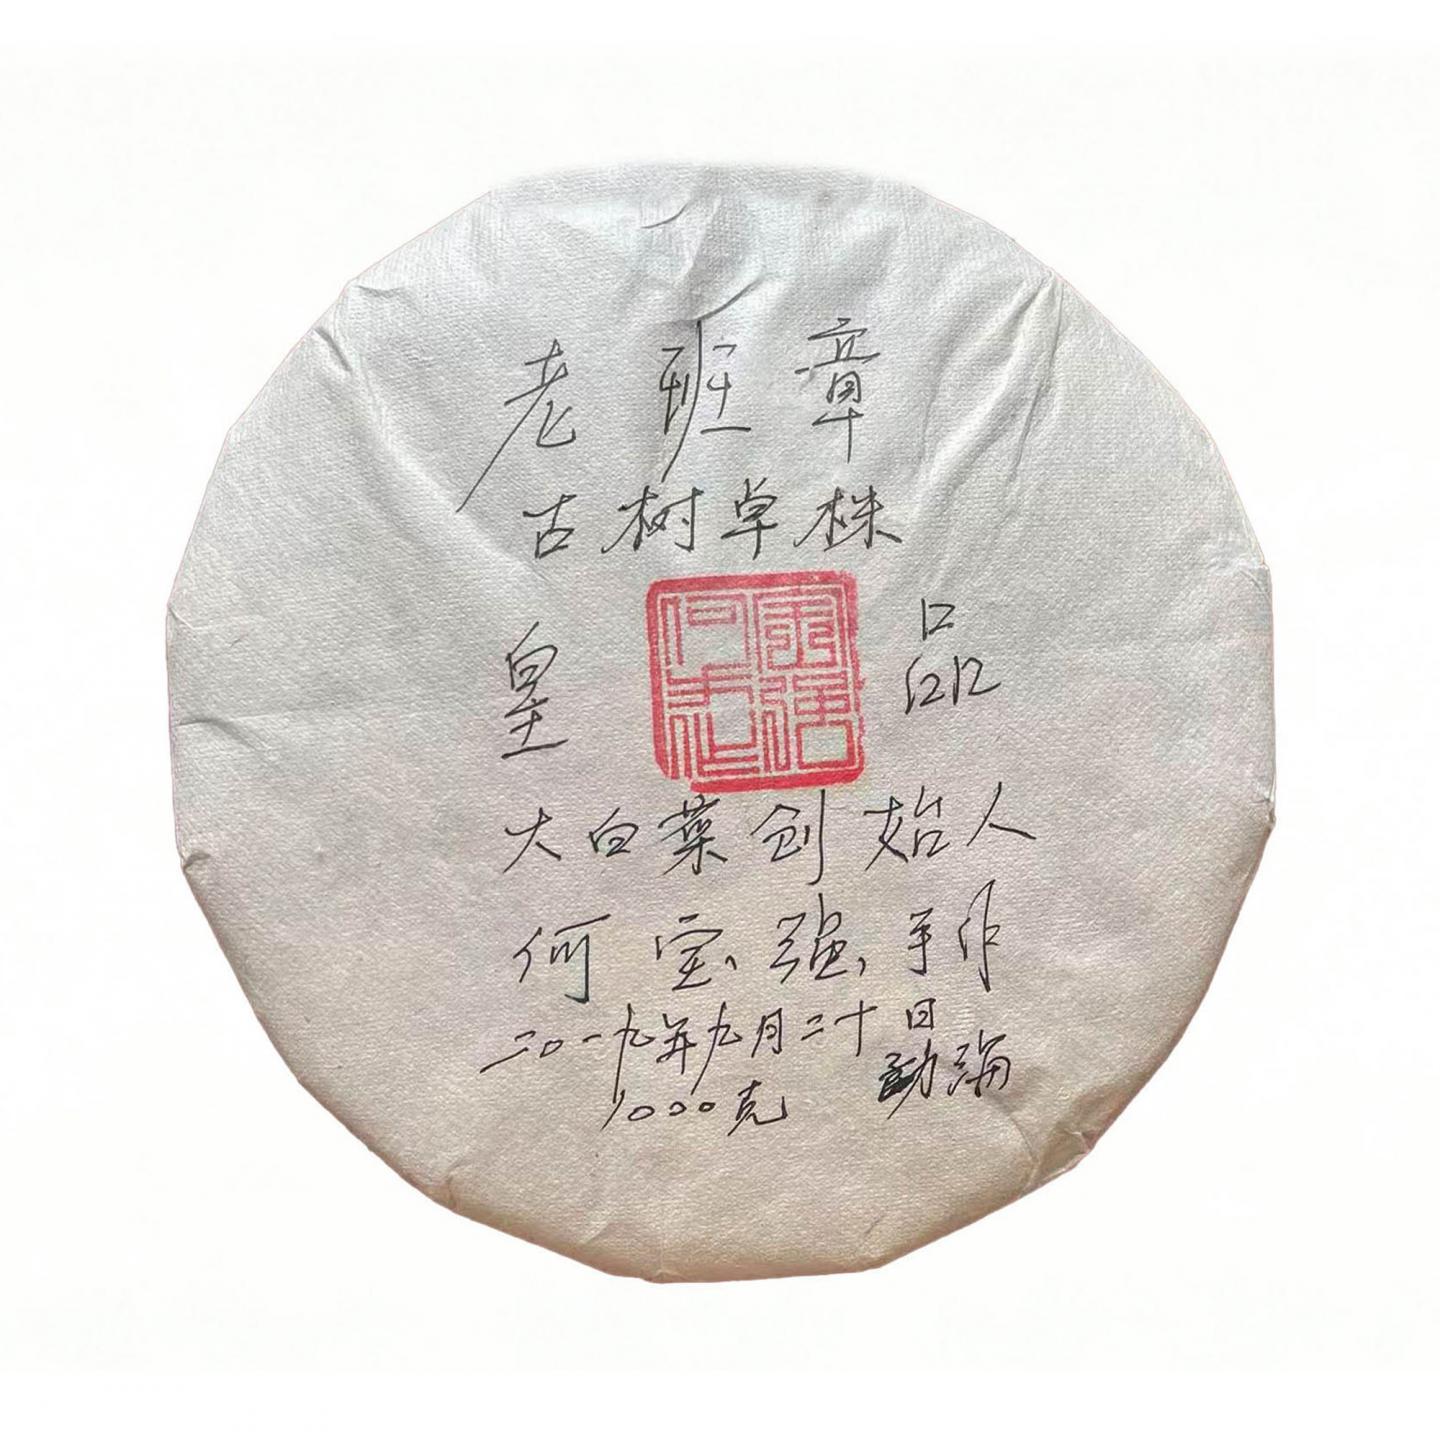 老班章
古树单株
皇 品
大白菜创始人
何宝强手作
二〇一九年九月二十日
勐海
1000克